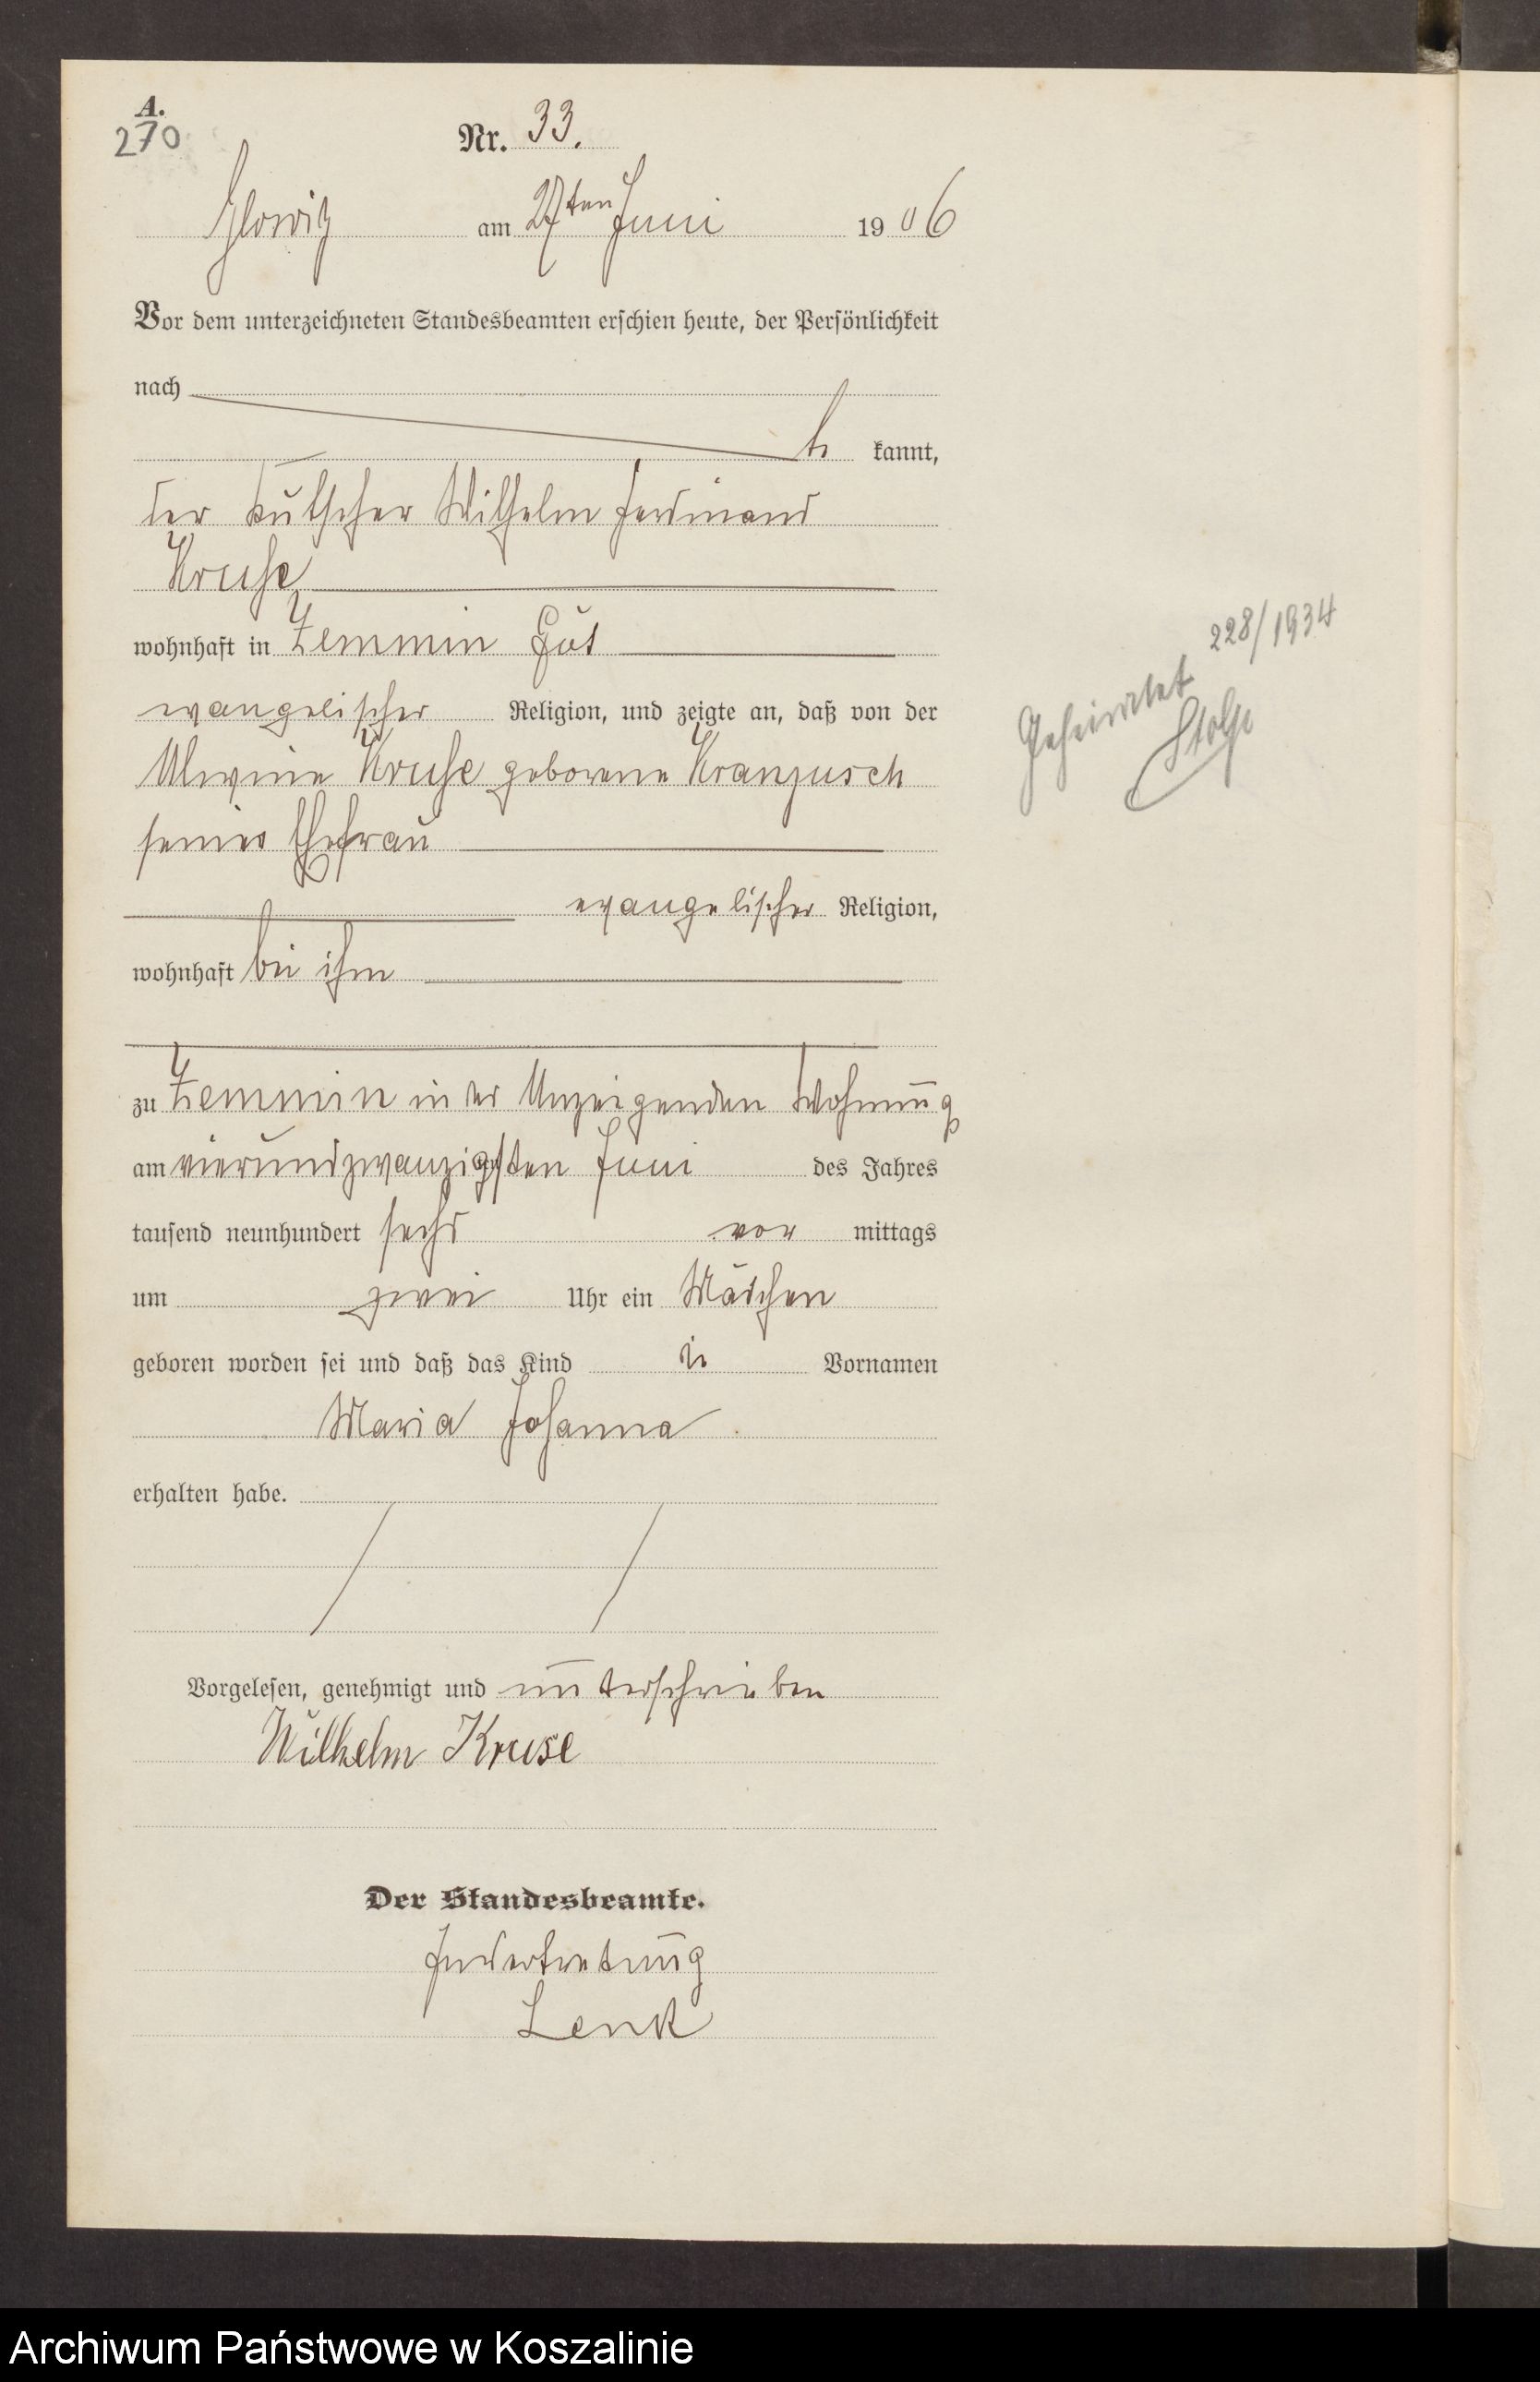 A.
270
Nr. 33.
Glowitz am 27ten Juni 1906
Vor dem unterzeichneten Standesbeamten erschien heute, der Persönlichkeit
nach
be kannt,
der Kutscher Wilhelm Ferdinand
Kruse
wohnhaft in Zemmin Gut
evangelischer Religion, und zeigte an, daß von der
Alwine Kruse geborene Kranzusch
seiner Ehefrau
evangelischer Religion,
wohnhaft bei ihm
zu Zemmin in der Anzeigenden Wohnung
am vierundzwanzigsten Juni des Jahres
tausend neunhundert sechs vor mittags
um zwei Uhr ein Mädchen
geboren worden sei und daß das Kind die Vornamen
Maria Johanna
erhalten habe.
Vorgelesen, genehmigt und unterschrieben
Wilhelm Kruse
Der Standesbeamte.
In Vertretung
Lenk
Geheiratet 228/1934
Stolp
Archiwum Państwowe w Koszalinie